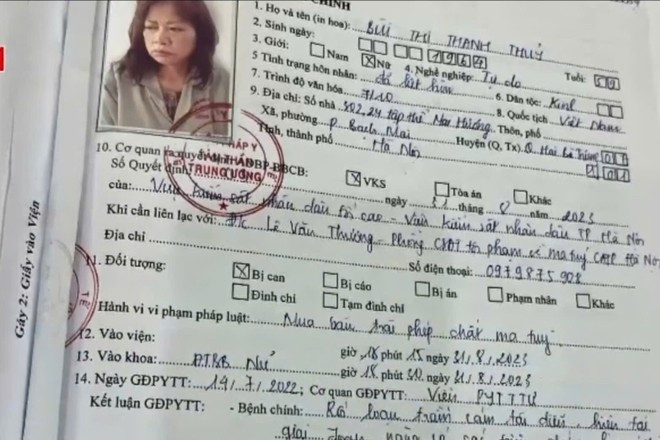 CHÍNH
1. Họ và tên (in hoa): BÙI THỊ THANH THUỶ
2. Sinh ngày: 1964 Tuổi: 59
3. Giới: Nam Nữ 4. Nghề nghiệp: Tự do
5 Tình trạng hôn nhân: đã kết hôn 6. Dân tộc: Kinh
7. Trình độ văn hóa 7/10 8. Quốc tịch: Việt Nam
9. Địa chỉ: Số nhà 302.24 tập thể Mai Hương Thôn, phố
Xã, phường P. Bạch Mai Huyện (Q, Tx) Q. Hai Bà Trưng
Tỉnh, thành phố Hà Nội
10. Cơ quan ra quyết định BBCB: VKS Tòa án Khác
Số Quyết định ngày 31 tháng 8 năm 2023
của: Viện kiểm sát nhân dân tối cao - Viện kiểm sát nhân dân TP Hà Nội
Khi cần liên lạc với: Đ/c Lê Văn Thưởng - Phòng CSĐT tội phạm về ma tuý CATP Hà Nội
Địa chỉ Số điện thoại: 0979875908
11. Đối tượng: Bị can Bị cáo Bị án Phạm nhân Khác
Đình chỉ Tạm đình chỉ
Hành vi vi phạm pháp luật: Mua bán trái phép chất ma tuý
12. Vào viện: giờ 18 phút 15 ngày 31.8.2023
13. Vào khoa: ĐTBB Nữ giờ 18 phút 30 ngày 31.8.2023
14. Ngày GĐPYTT: 14.7.2022; Cơ quan GĐPYTT: Viện PYTTTƯ
Kết luận GĐPYTT: - Bệnh chính: Rối loạn trầm cảm tái diễn, hiện tại
giai
Gáy 2: Giấy vào Viện
PHÁP Y
TRUNG ƯƠNG